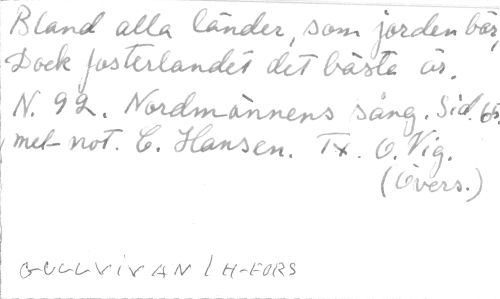 Bland alla länder, som jorden bär,
Dock fosterlandet det bästa är.
N. 92. Nordmännens sång. Sid. 65.
met not. C. Hansen. Tx. O. Vig.
(Övers.)
GULLVIVAN / H-FORS